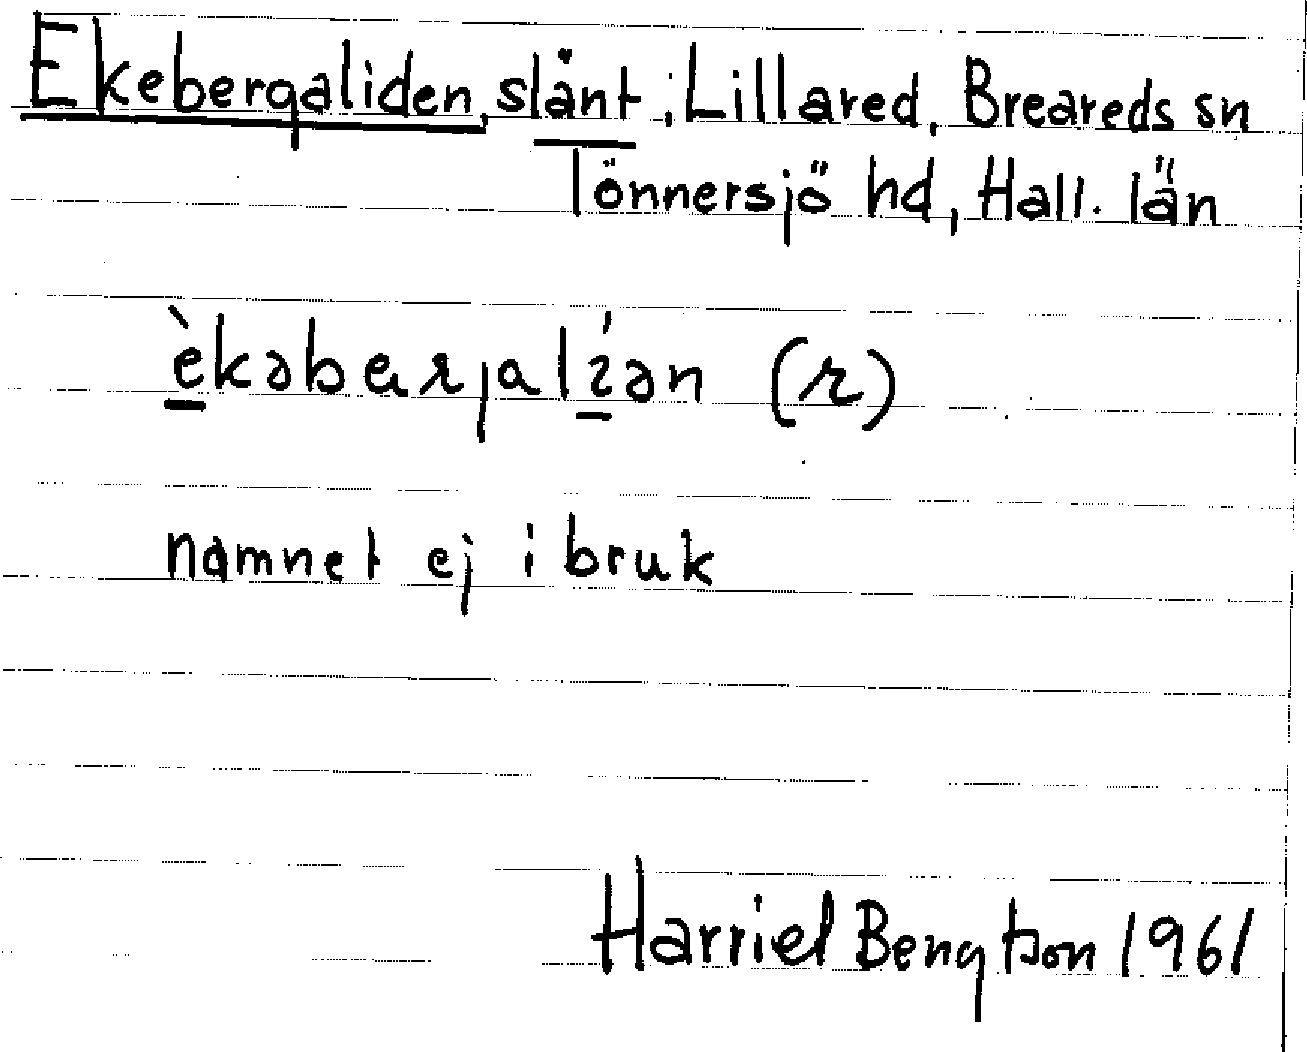 Ekebergaliden, slänt, Lillared, Breareds sn
Tönnersjö hd, Hall. län
èkəbærjalíən (r)
namnet ej i bruk
Harriet Bengtson 1961